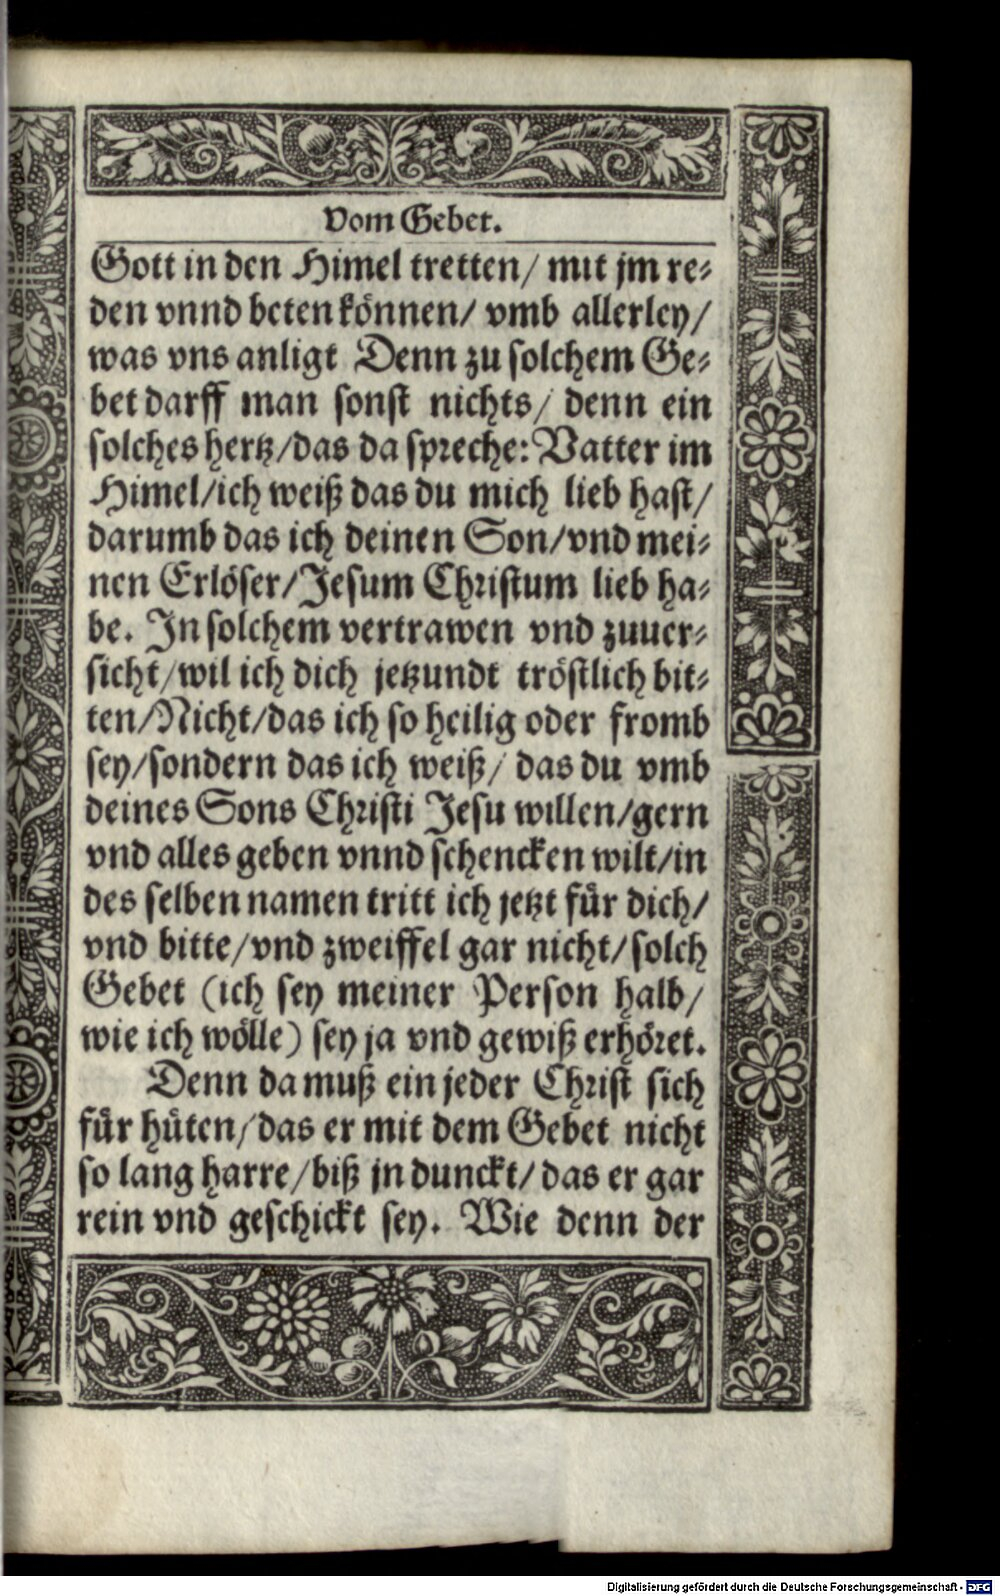 Vom Gebet.
Gott in den Himel tretten/ mit jm re⸗
den vnnd beten können/ vmb allerley/
was vns anligt Denn zu solchem Ge⸗
bet darff man sonst nichts/ denn ein
solches hertz/das da spreche: Vatter im
Himel/ich weiß das du mich lieb hast/
darumb das ich deinen Son/vnd mei⸗
nen Erlöser/Jesum Christum lieb ha⸗
be. In solchem vertrawen vnd zuuer⸗
sicht/wil ich dich jetzundt tröstlich bit⸗
ten/Nicht/das ich so heilig oder fromb
sey/sondern das ich weiß/ das du vmb
deines Sons Christi Jesu willen/gern
vnd alles geben vnnd schencken wilt/in
des selben namen tritt ich jetzt für dich/
vnd bitte/vnd zweiffel gar nicht/solch
Gebet (ich sey meiner Person halb/
wie ich wölle) sey ja vnd gewiß erhöret.
Denn da muß ein jeder Christ sich
für hüten/das er mit dem Gebet nicht
so lang harre/biß jn dunckt/das er gar
rein vnd geschickt sey. Wie denn der
Digitalisierung gefördert durch die Deutsche Forschungsgemeinschaft - DFG